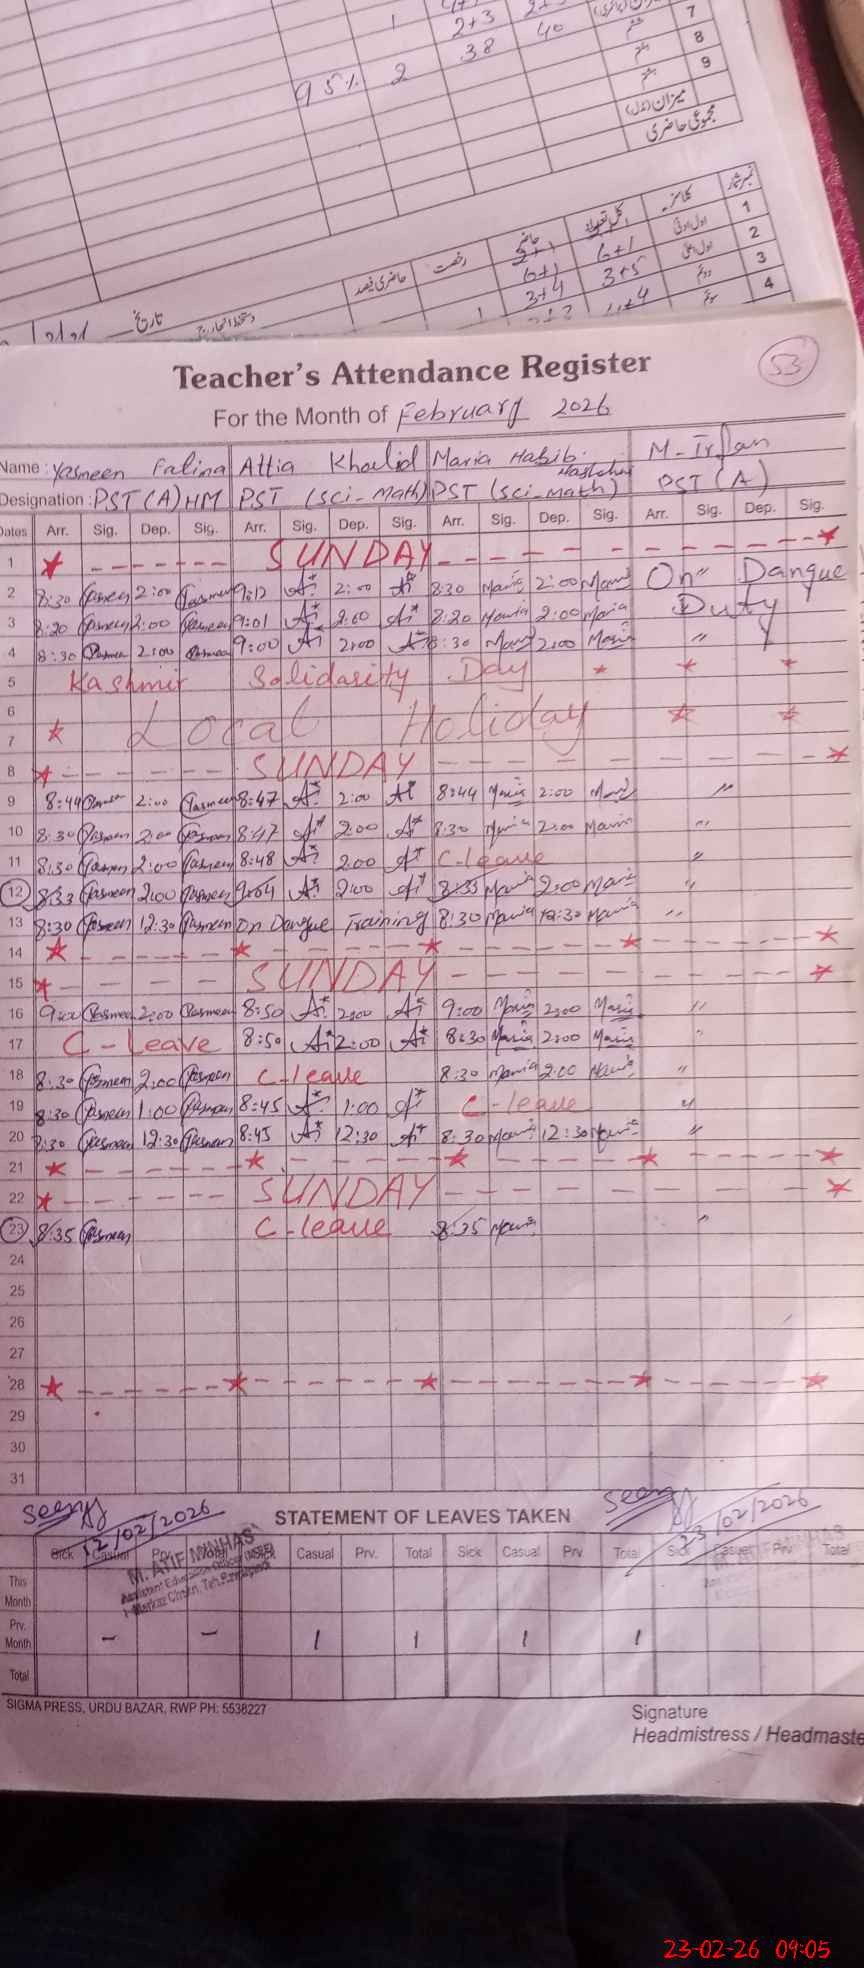 1 2+3
95% 2 38 40
7
8
9
میزان(کل)
مجموعی حاضری
نمبر شمار کلاسز کل تعداد حاضر رخصت حاضری فیصد
1 اول ادنیٰ 6+1
2 اول اعلیٰ 3+5 6+1
3 دوم 3+4
4 سوم 1
تاریخ
53
Teacher's Attendance Register
For the Month of February 2026
Name: Yasmeen Attia Khalid Maria Habib M-Irfan
Designation: PST(A)HM PST (sci-math) PST (sci-math) PST (A)
Dates Arr. Sig. Dep. Sig. Arr. Sig. Dep. Sig. Arr. Sig. Dep. Sig. Arr. Sig. Dep. Sig.
1 SUNDAY
2 8:30 Yasmeen 2:00 Yasmeen 9:12 2:00 8:30 Maria 2:00 Maria On Dangue
3 8:20 Yasmeen 2:00 Yasmeen 9:01 2:00 8:20 Maria 2:00 Maria Duty
4 8:30 Yasmeen 2:00 Yasmeen 9:00 2:00 8:30 Maria 2:00 Maria "
5 Kashmir Solidarity Day
6
7 Local Holiday
8 SUNDAY
9 8:44 Yasmeen 2:00 Yasmeen 8:47 2:00 8:44 Maria 2:00 Maria "
10 8:30 Yasmeen 2:00 Yasmeen 8:47 2:00 8:30 Maria 2:00 Maria "
11 8:30 Yasmeen 2:00 Yasmeen 8:48 2:00 C-leave "
12 8:33 Yasmeen 2:00 Yasmeen 9:04 2:00 8:35 Maria 2:00 Maria "
13 8:30 Yasmeen 12:30 Yasmeen On Dangue Training 8:30 Maria 12:30 Maria "
14
15 SUNDAY
16 9:00 Yasmeen 2:00 Yasmeen 8:50 2:00 9:00 Maria 2:00 Maria "
17 C-Leave 8:50 2:00 8:30 Maria 2:00 Maria "
18 8:30 Yasmeen 2:00 Yasmeen C-leave 8:30 Maria 2:00 Maria "
19 8:30 Yasmeen 1:00 Yasmeen 8:45 1:00 C-leave "
20 8:30 Yasmeen 12:30 Yasmeen 8:45 12:30 8:30 Maria 12:30 Maria "
21
22 SUNDAY
23 8:35 Yasmeen C-leave 8:35 Maria "
24
25
26
27
28
29
30
31
Seen Seen
STATEMENT OF LEAVES TAKEN
12/02/2026 23/02/2026
Sick Casual Prv. Total Sick Casual Prv. Total Sick Casual Prv. Total Sick Casual Prv. Total
M. ATIF MINHAS
Assistant Education Officer
This Month
Prv. Month - - 1 1 1 1
Total
SIGMA PRESS, URDU BAZAR, RWP PH: 5538227
Signature
Headmistress / Headmaste
23-02-26 09:05